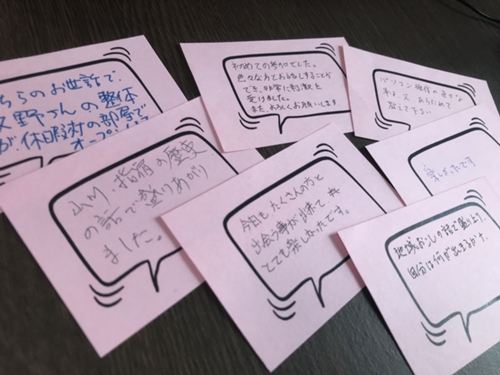 ちらのお世話で、
野さんの整体
が休日対の部屋で
オープン
初めての参加でした。
色々な方とお話しすることが
でき、非常に刺激を
受けました。
また よろしくお願いします
パソコン操作の
教えて下さい
楽しかったです
山川、指宿の歴史
の話で盛りあがり
ました。
今日も たくさんの方と
出会う事が出来て
とても楽しかったです。
地域おこしの話で盛り上り、
自分は何が出来るか?